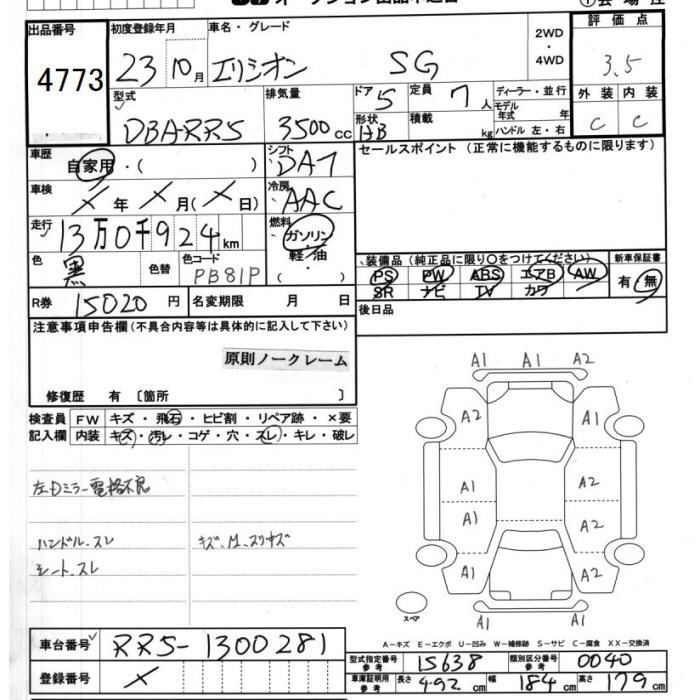 出品番号
4773
初度登録年月
23 10月
車名・グレード
エリシオン SG
2WD
・
4WD
評価点
3.5
外装 内装
C C
型式
DBA-RR5
排気量
3500cc
ドア 5
形状 HB
定員 7人
積載 kg
ディーラー・並行
モデル年式 年
ハンドル 左・右
車歴
自家用・( )
シフト
DAT
セールスポイント (正常に機能するものに限ります)
車検
× 年 × 月(× 日)
冷房
AAC
走行
13万0千924km
燃料
ガソリン
・
軽/油
・( )
色
黒
色替
色コード
PB81P
装備品(純正品に限り〇をつけてください)
PS PW ABS エアB AW
SR ナビ TV カワ
新車保証書
有・無
R券 15020 円
名変期限 月 日
後日品
注意事項申告欄(不具合内容等は具体的に記入して下さい)
原則ノークレーム
修復歴 有 [箇所 ]
検査員 FW キズ・飛石・ヒビ割・リペア跡・×要
記入欄 内装 キズ・汚レ・コゲ・穴・スレ・キレ・破レ
左Dミラー電格不良
ハンドル.スレ
キズ.M.スリキズ
シート.スレ
A1 A1 A2
A2 A1
A1 A2
A1 A2
A1 A2
A1 A1
スペア
A-キズ E-エクボ U-凹み W-補修跡 S-サビ C-腐食 XX-交換済
車台番号 RR5-1300281
登録番号 ×
型式指定番号 参考 15638 類別区分番号 参考 0040
車庫証明用 参考 長さ 492 cm 幅 184 cm 高さ 179 cm